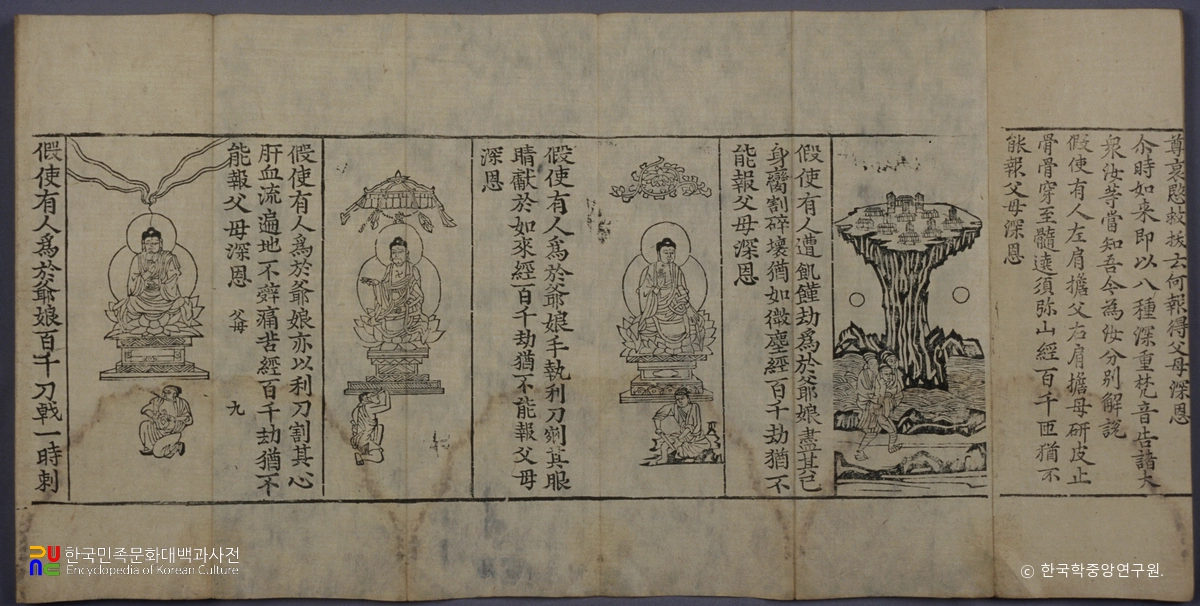 尊哀愍救拔云何報得父母深恩
尒時如来即以八種深重梵音告諸大
衆汝等當知吾今為汝分别解說
假使有人左肩擔父右肩擔母研皮止
骨骨穿至髓遶須弥山經百千匝猶不
能報父母深恩
假使有人遭飢饉劫爲於爺娘盡其己
身臠割碎壞猶如微塵經百千劫猶不
能報父母深恩
假使有人爲於爺娘手執利刀剜其眼
睛獻於如來經百千劫猶不能報父母
深恩
假使有人爲於爺娘亦以利刀割其心
肝血流遍地不辤痛苦經百千劫猶不
能報父母深恩
父母 九
假使有人爲於爺娘百千刀戟一時刺
한국민족문화대백과사전
Encyclopedia of Korean Culture
© 한국학중앙연구원.